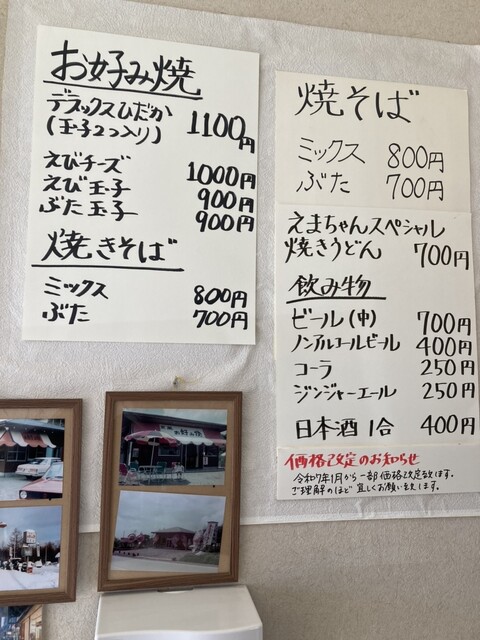 お好み焼
デラックスひだか
(玉子2つ入り) 1100円
えびチーズ 1000円
えび玉子 900円
ぶた玉子 900円
焼きそば
ミックス 800円
ぶた 700円
焼そば
ミックス 800円
ぶた 700円
えまちゃんスペシャル
焼きうどん 700円
飲み物
ビール(中) 700円
ノンアルコールビール 400円
コーラ 250円
ジンジャーエール 250円
日本酒1合 400円
価格改定のお知らせ
令和7年1月から一部価格改定致します。
ご理解のほど宜しくお願い致します。